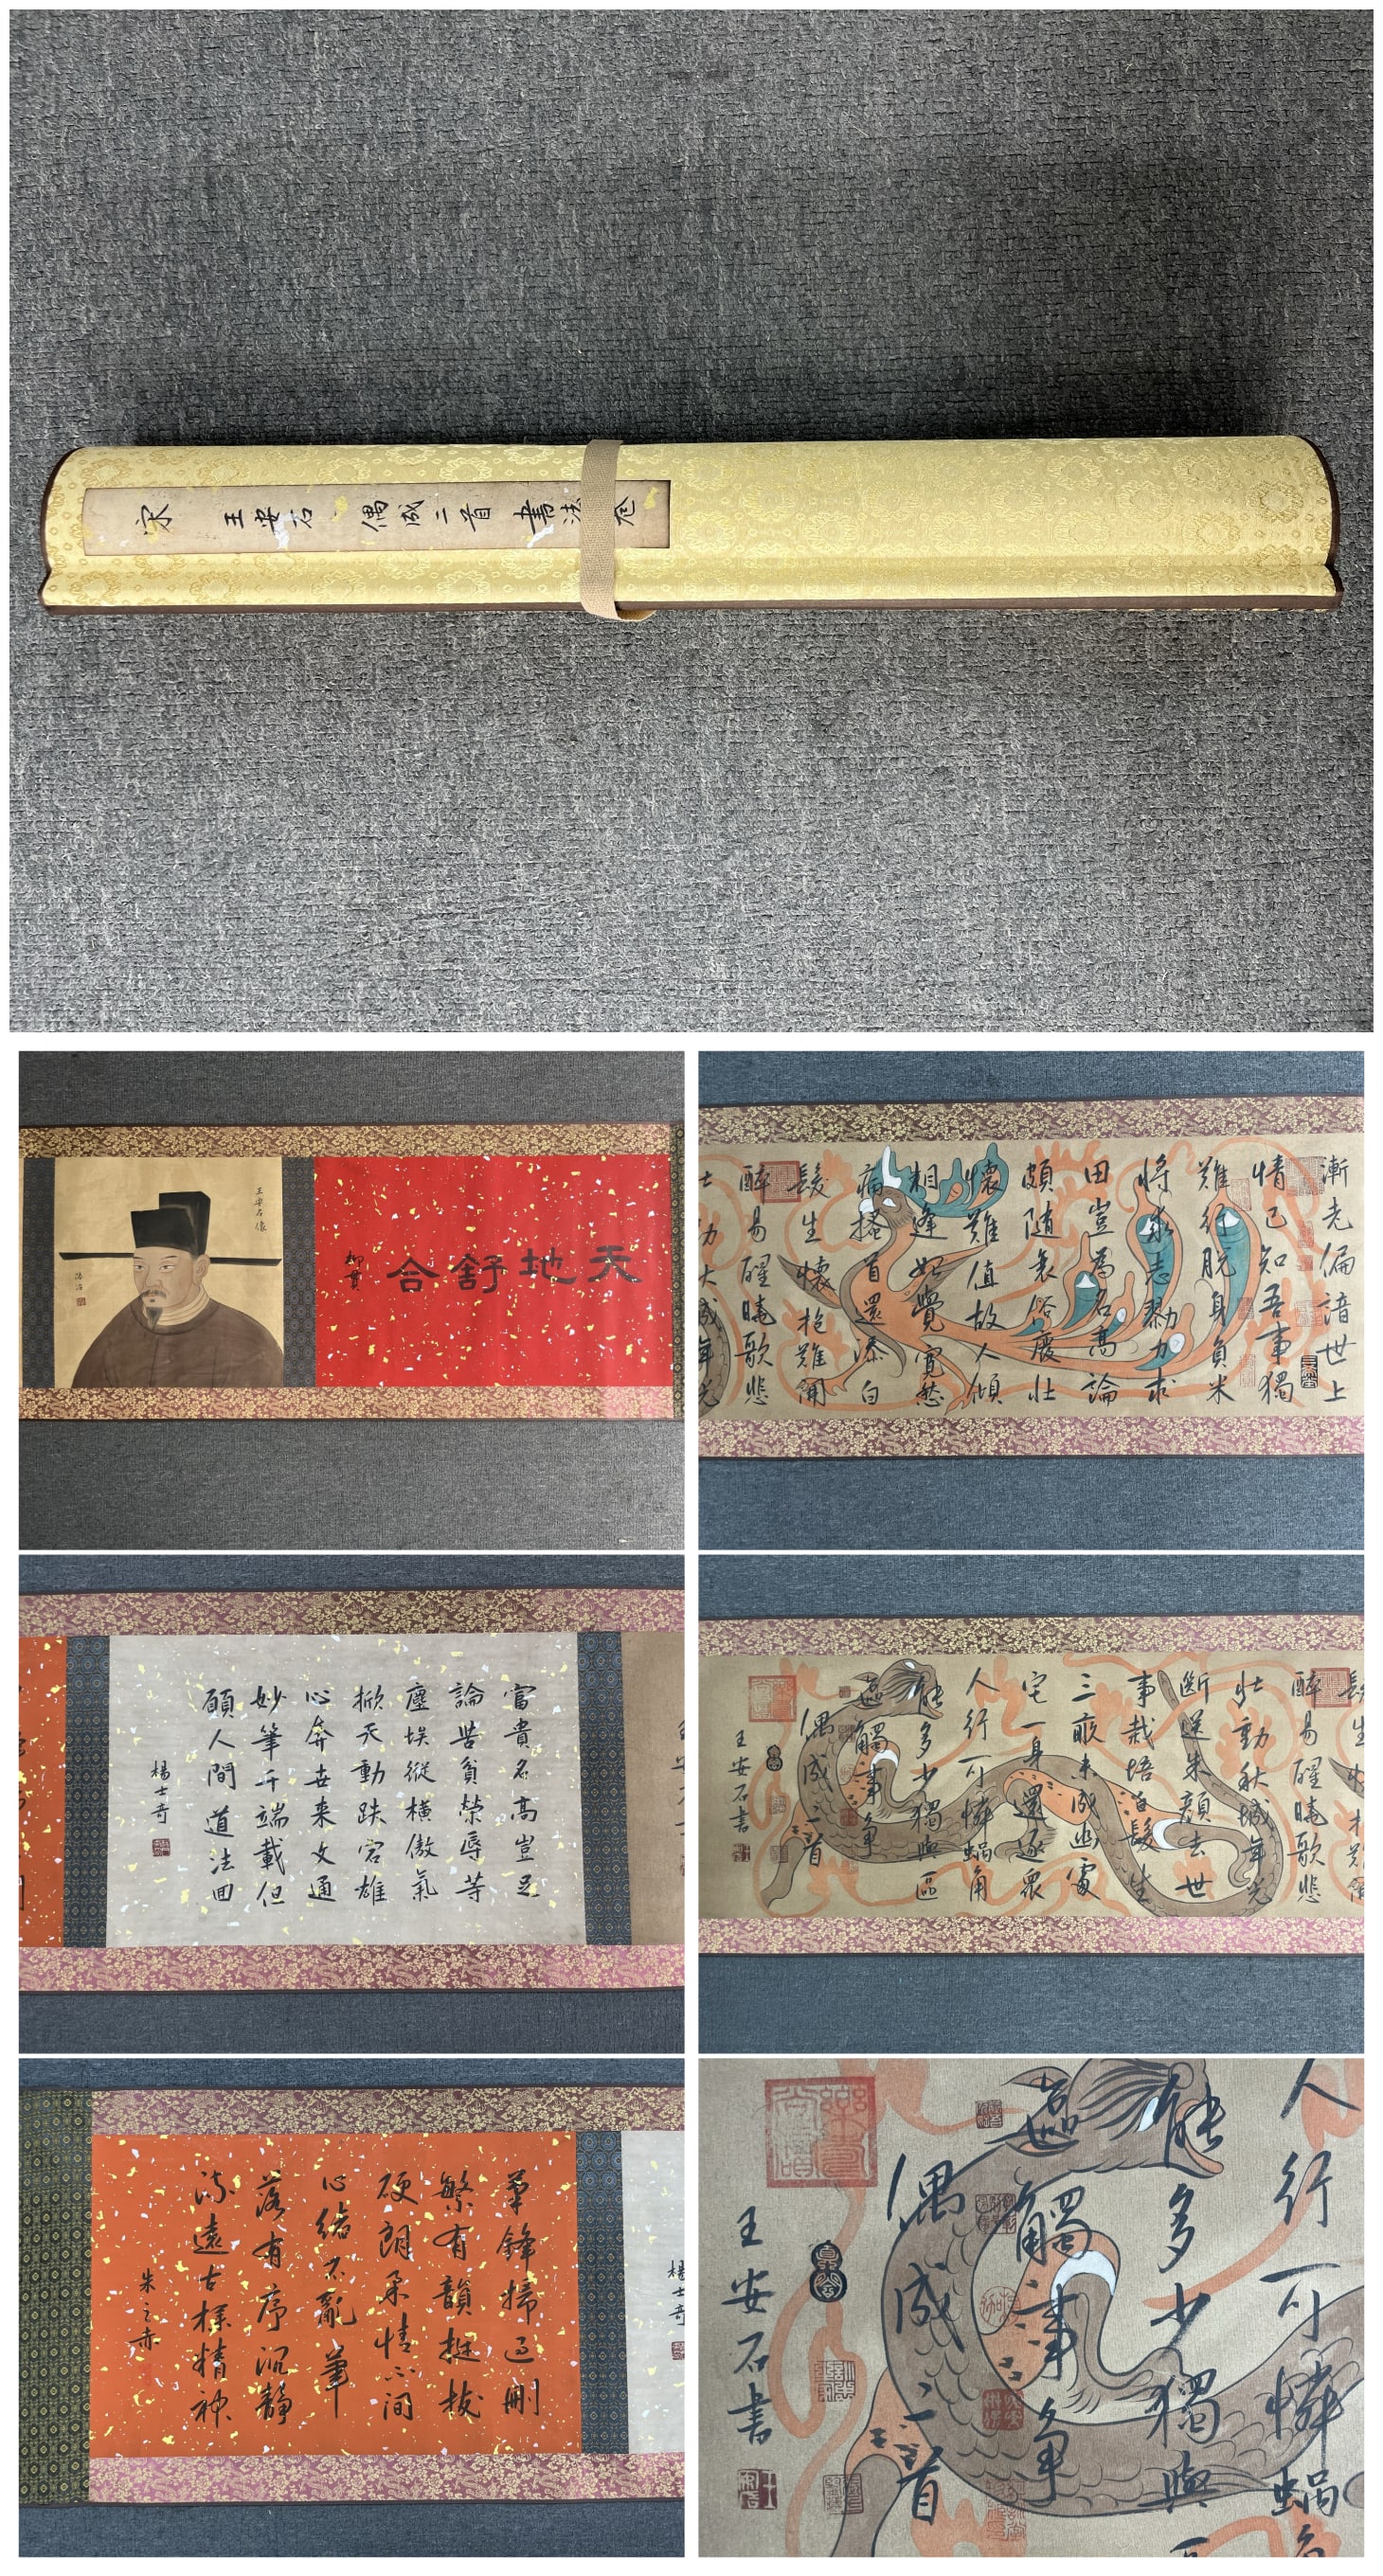 宋 王安石 偶成二首 書法卷
天地舒合
柳貫
王安石像
漸老偏諳世上
情已知吾事獨
難行脱身負米
將求志勠力求
田豈為名高論
頗隨衰俗廢壯
懷難值故人傾
相逢始覺寬愁
病搔首還添白
髮生懷抱難開
醉易醒曉歌悲
士力大成年光
富貴名高豈足
論苦貧榮辱等
塵埃縱橫傲氣
掀天動跌宕雄
心奔去来文通
妙筆千端載但
願人間道法回
楊士奇
髮生
醉易醒曉歌悲
壯動秋城年光
斷送朱顏去世
事栽培白髮生
三畝未成幽處
宅一身還逐眾
人行可憐蝸角
能多少獨與區
區觸事爭
偶成二首
王安石書
筆鋒掃過刪
繁有韻挺拔
硬朗柔情間
心緒不亂筆
落有序沉靜
流遠古樸精神
朱之赤
楊士奇
人行可憐蝸角
能多少獨與
區觸事爭
偶成二首
王安石書